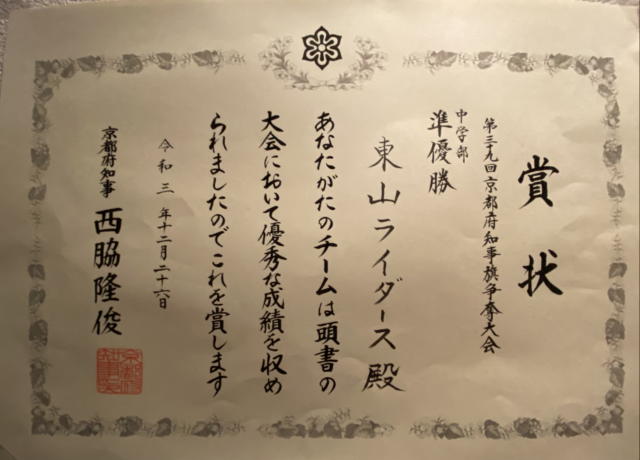 賞状
第三十九回京都府知事旗争奪大会
中学部
準優勝
東山ライダース殿
あなたがたのチームは頭書の
大会において優秀な成績を収め
られましたのでこれを賞します
令和三年十二月二十六日
京都府知事 西脇隆俊